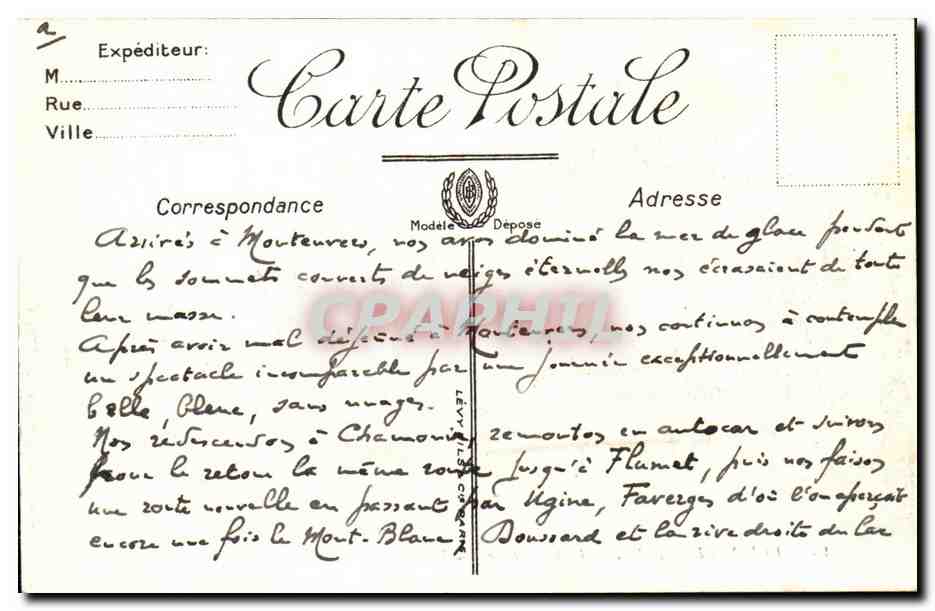 a
Expéditeur:
M
Rue
Ville
Carte Postale
Correspondance
Modèle Déposé
Adresse
Arrivés à Montenvers, nos avons dominé la mer de glace pendant
que les sommets couverts de neiges éternelles nos écrasaient de toute
leur masse.
CPAPHIL
Après avoir mal déjeuné à Montenvers, nos continuons à contempler
un spectacle incomparable par une journée exceptionnellement
belle, bleue, sans nuages.
Nos redescendons à Chamonix, remontons en autocar et suivons
pour le retour la même route jusqu'à Flumet, puis nos faisons
une route nouvelle en passant par Ugine, Faverges d'où l'on aperçoit
encore une fois le Mont-Blanc, Doussard et la rive droite du lac
LÉVY FILS